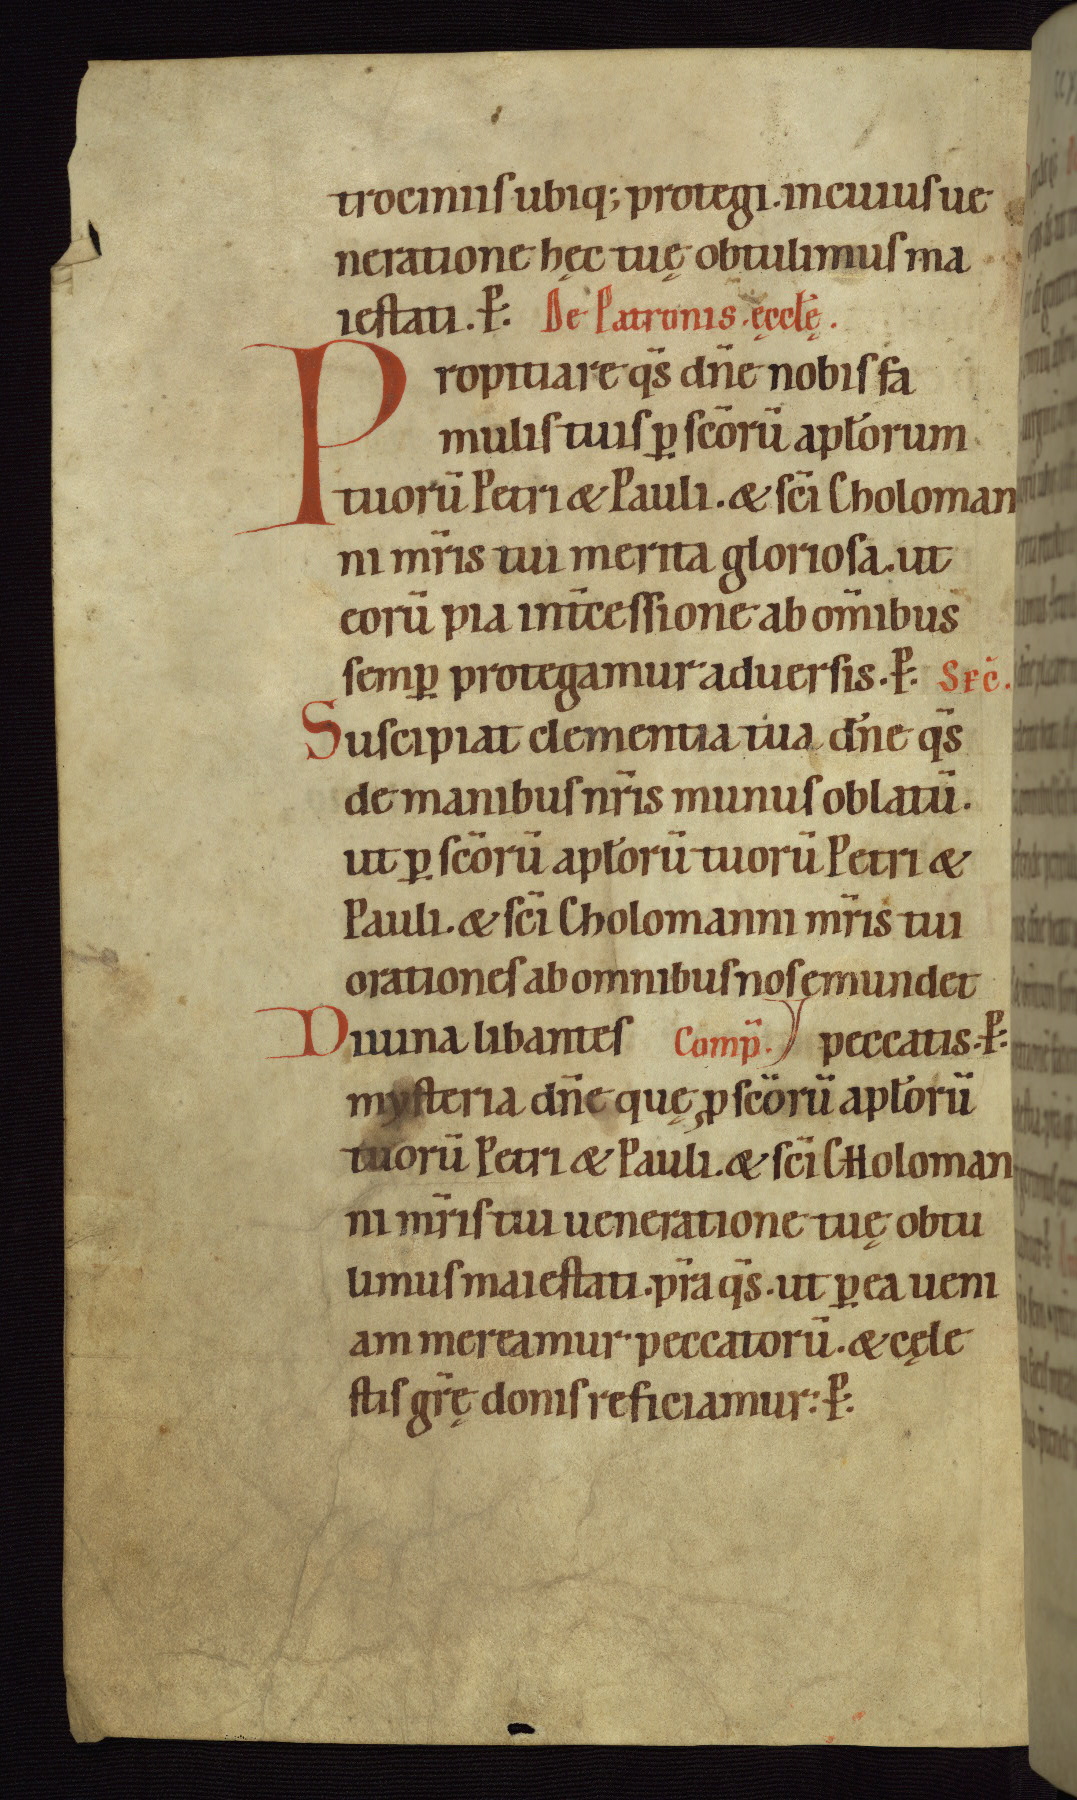 trociniis ubiq; protegi. in cuius ue
neratione hęc tuę obtulimus ma
iestati. P̄: De Patronis. ęccłę.
Propitiare q̄s dn̄e nobis fa
mulis tuis ꝑ sc̄orū apłorum
tuorū Petri & Pauli. & sc̄i Choloman
ni mr̄is tui merita gloriosa. ut
eorū pia int̄cessione ab om̄ibus
semꝑ protegamur aduersis. P̄: Sec̄.
Suscipiat clementia tua dn̄e q̄s
de manibus nr̄is munus oblatū.
ut ꝑ sc̄orū apłorū tuorū Petri &
Pauli. & sc̄i Cholomanni mr̄is tui
orationes ab omnibus nos emundet
Diuina libantes Comp̄. peccatis. P̄:
mysteria dn̄e quę ꝓ sc̄orū apłorū
tuorū Petri & Pauli. & sc̄i CHoloman
ni mr̄is tui ueneratione tuę obtu
limus maiestati. p̄ra q̄s. ut ꝑ ea ueni
am mereamur peccatorū. & cęle
stis gr̄ę donis reficiamur: P̄: